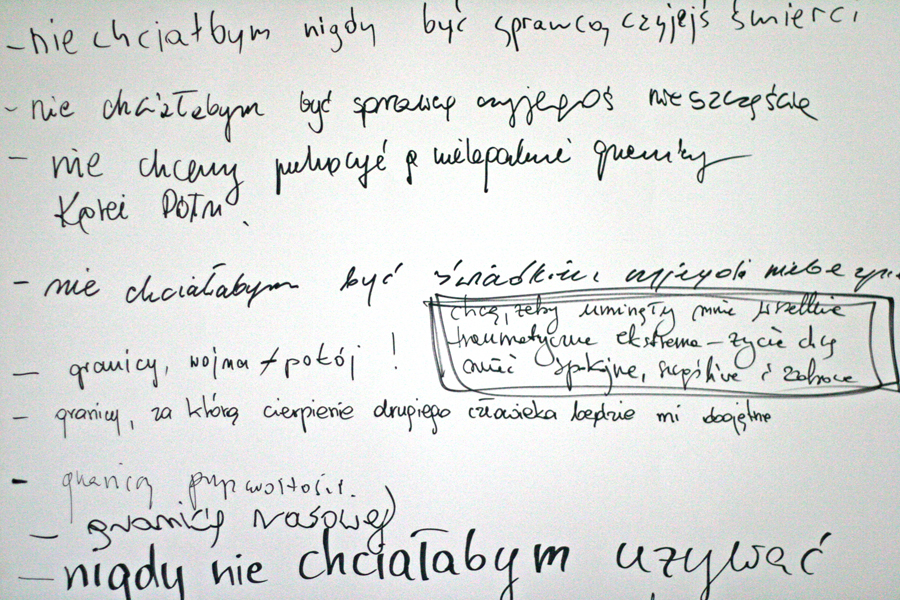 - nie chciałbym nigdy być sprawcą czyjejś śmierci
- nie chciałabym być sprawcą czyjegoś nieszczęścia
- nie chcemy przekroczyć nielegalnie granicy
Korei Płn.
- nie chciałabym być świadkiem
chcę, żeby uminęły mnie wszelkie
traumatyczne ekstrema – życie chcę
mieć spokojne, szczęśliwe i zdrowe
- granicy, wojna ≠ pokój !
- granicy, za którą cierpienie drugiego człowieka będzie mi obojętne
- granicy
- granicy rasowej
- nigdy nie chciałabym używać